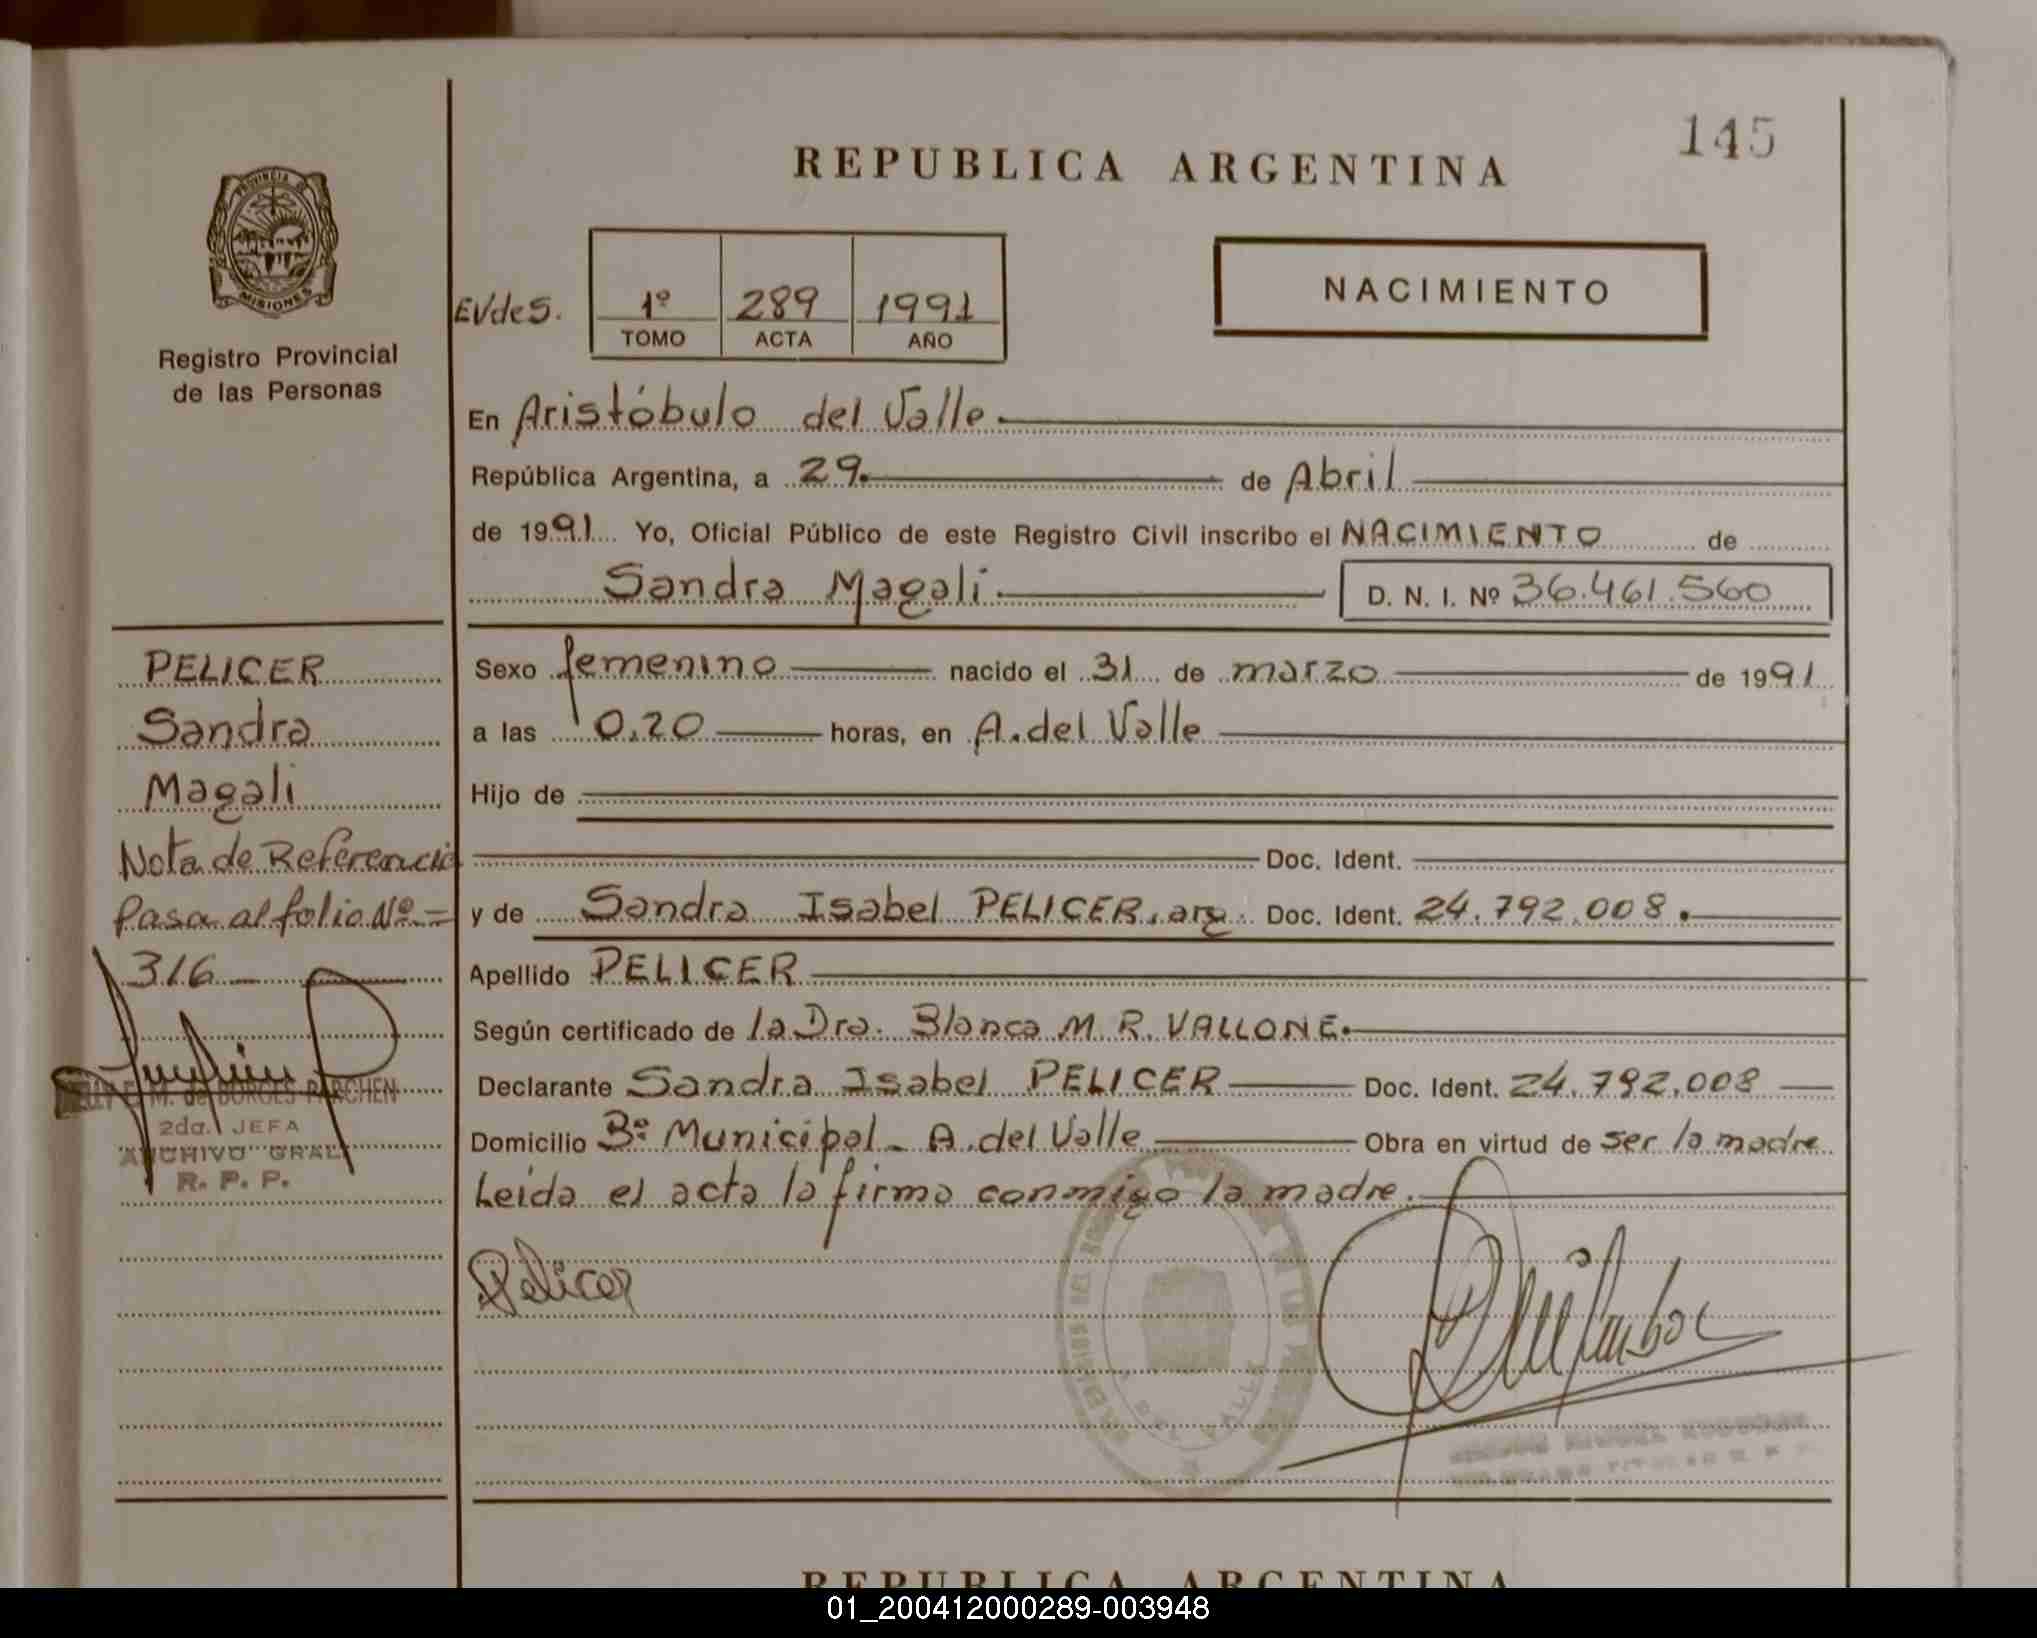 145
REPUBLICA ARGENTINA
PROVINCIA DE
MISIONES
Registro Provincial
de las Personas
EVdeS.
1º 289 1991
TOMO ACTA AÑO
NACIMIENTO
En Aristóbulo del Valle
República Argentina, a 29. de Abril
de 1991 Yo, Oficial Público de este Registro Civil inscribo el NACIMIENTO de
Sandra Magali D. N. I. Nº 36.461.560
PELICER
Sandra
Magali
Nota de Referencia
Pasa al folio Nº =
316
M. de BORGES
2da. JEFA
ARCHIVO GRAL
R. P. P.
Sexo femenino nacido el 31 de marzo de 1991
a las 0,20 horas, en A. del Valle
Hijo de
Doc. Ident.
y de Sandra Isabel PELICER, arg. Doc. Ident. 24.792.008.
Apellido PELICER
Según certificado de la Dra. Blanca M. R. VALLONE.
Declarante Sandra Isabel PELICER Doc. Ident. 24.792.008
Domicilio Bº Municipal - A. del Valle Obra en virtud de ser la madre
Leida el acta la firma conmigo la madre.
Pelicer
REPUBLICA ARGENTINA
01_200412000289-003948